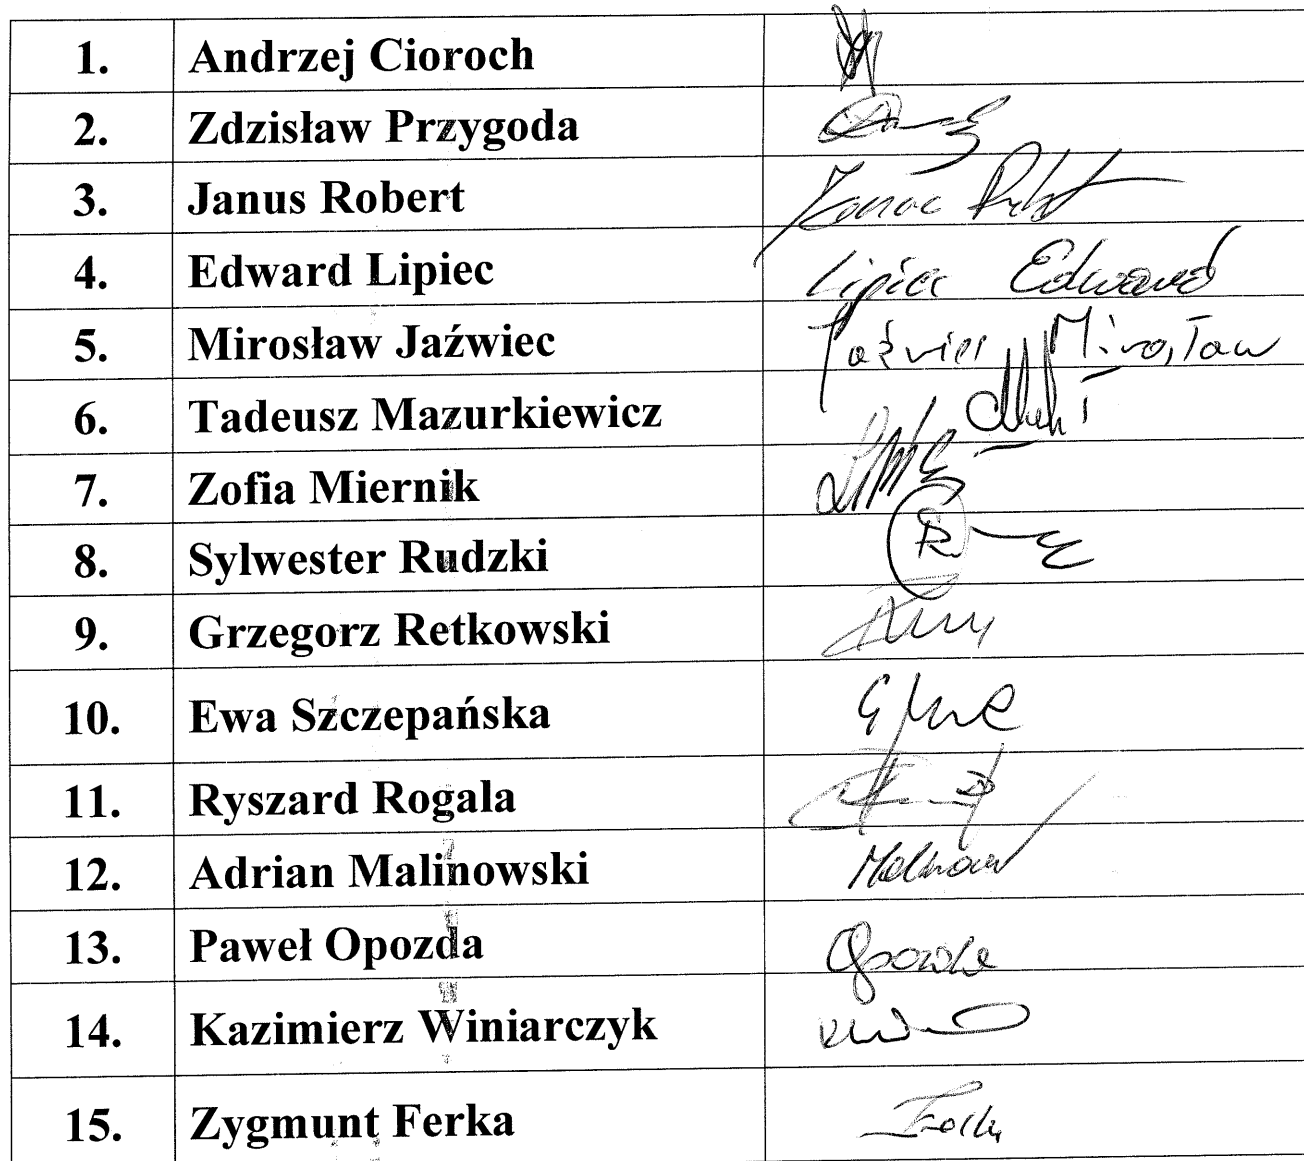 1. Andrzej Cioroch
2. Zdzisław Przygoda
3. Janus Robert
4. Edward Lipiec Lipiec Edward
5. Mirosław Jaźwiec Jaźwiec Mirosław
6. Tadeusz Mazurkiewicz
7. Zofia Miernik
8. Sylwester Rudzki
9. Grzegorz Retkowski
10. Ewa Szczepańska
11. Ryszard Rogala
12. Adrian Malinowski
13. Paweł Opozda Opozda
14. Kazimierz Winiarczyk
15. Zygmunt Ferka